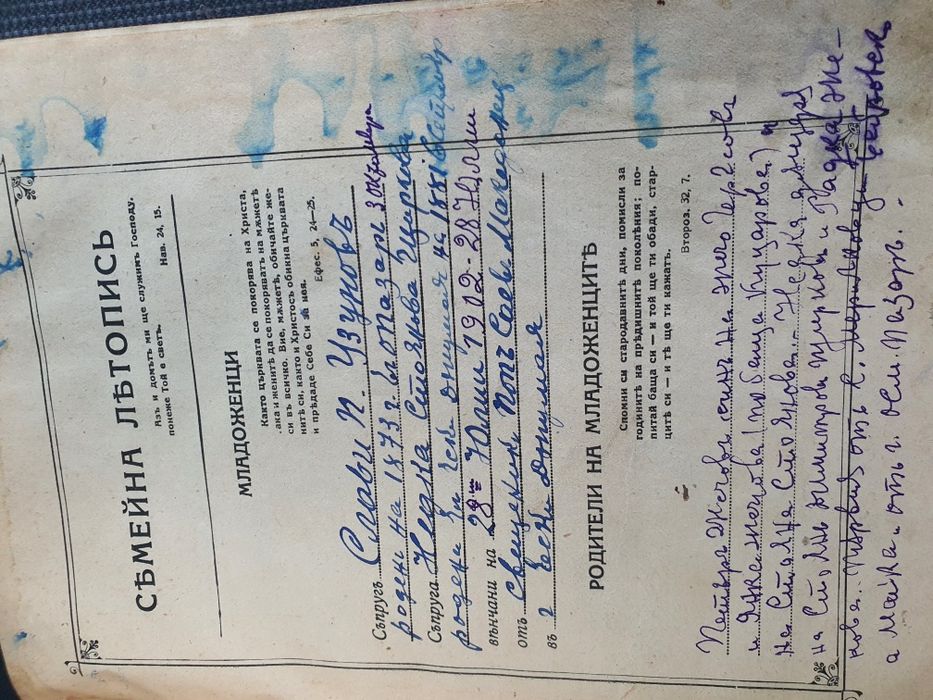 СѢМЕЙНА ЛѢТОПИСЬ
Азъ и домътъ ми ще служимъ Господу,
понеже Той е светъ.
Нав. 24, 15.
МЛАДОЖЕНЦИ
Както църквата се покорява на Христа,
така и женитѣ да се покоряватъ на мѫжетѣ
си въ всичко. Вие, мѫжетѣ, обичайте же-
нитѣ си, както и Христосъ обикна църквата
и прѣдаде Себе Си за нея.
Ефес. 5, 24—25.
Съпругъ Слави П. Узуновъ
роденъ на 1873 г. в. Лопазаръ 3 октомври
Съпруга Недка Стоянова
родена въ Ески Джумая на 1881
вѣнчани на 28 Юлий 1902 - 28 Юлии
отъ Свещеникъ Попъ Савъ Македонецъ
въ г Ески Джумая
РОДИТЕЛИ НА МЛАДОЖЕНЦИТѢ
Спомни си стародавнитѣ дни, помисли за
годинитѣ на прѣдишнитѣ поколѣния; по-
питай баща си — и той ще ти обади, стар-
цитѣ си — и тѣ ще ти кажатъ.
Второз. 32, 7.
Петъръ Жечовъ синъ на Жечо
и Яна Женчова (по баща
на Стояна Стоянова - Недка
на Стоянъ Димитровъ и Радка Же-
нова. Първия отъ с.
а майка и отъ г. Осм. Пазаръ. -